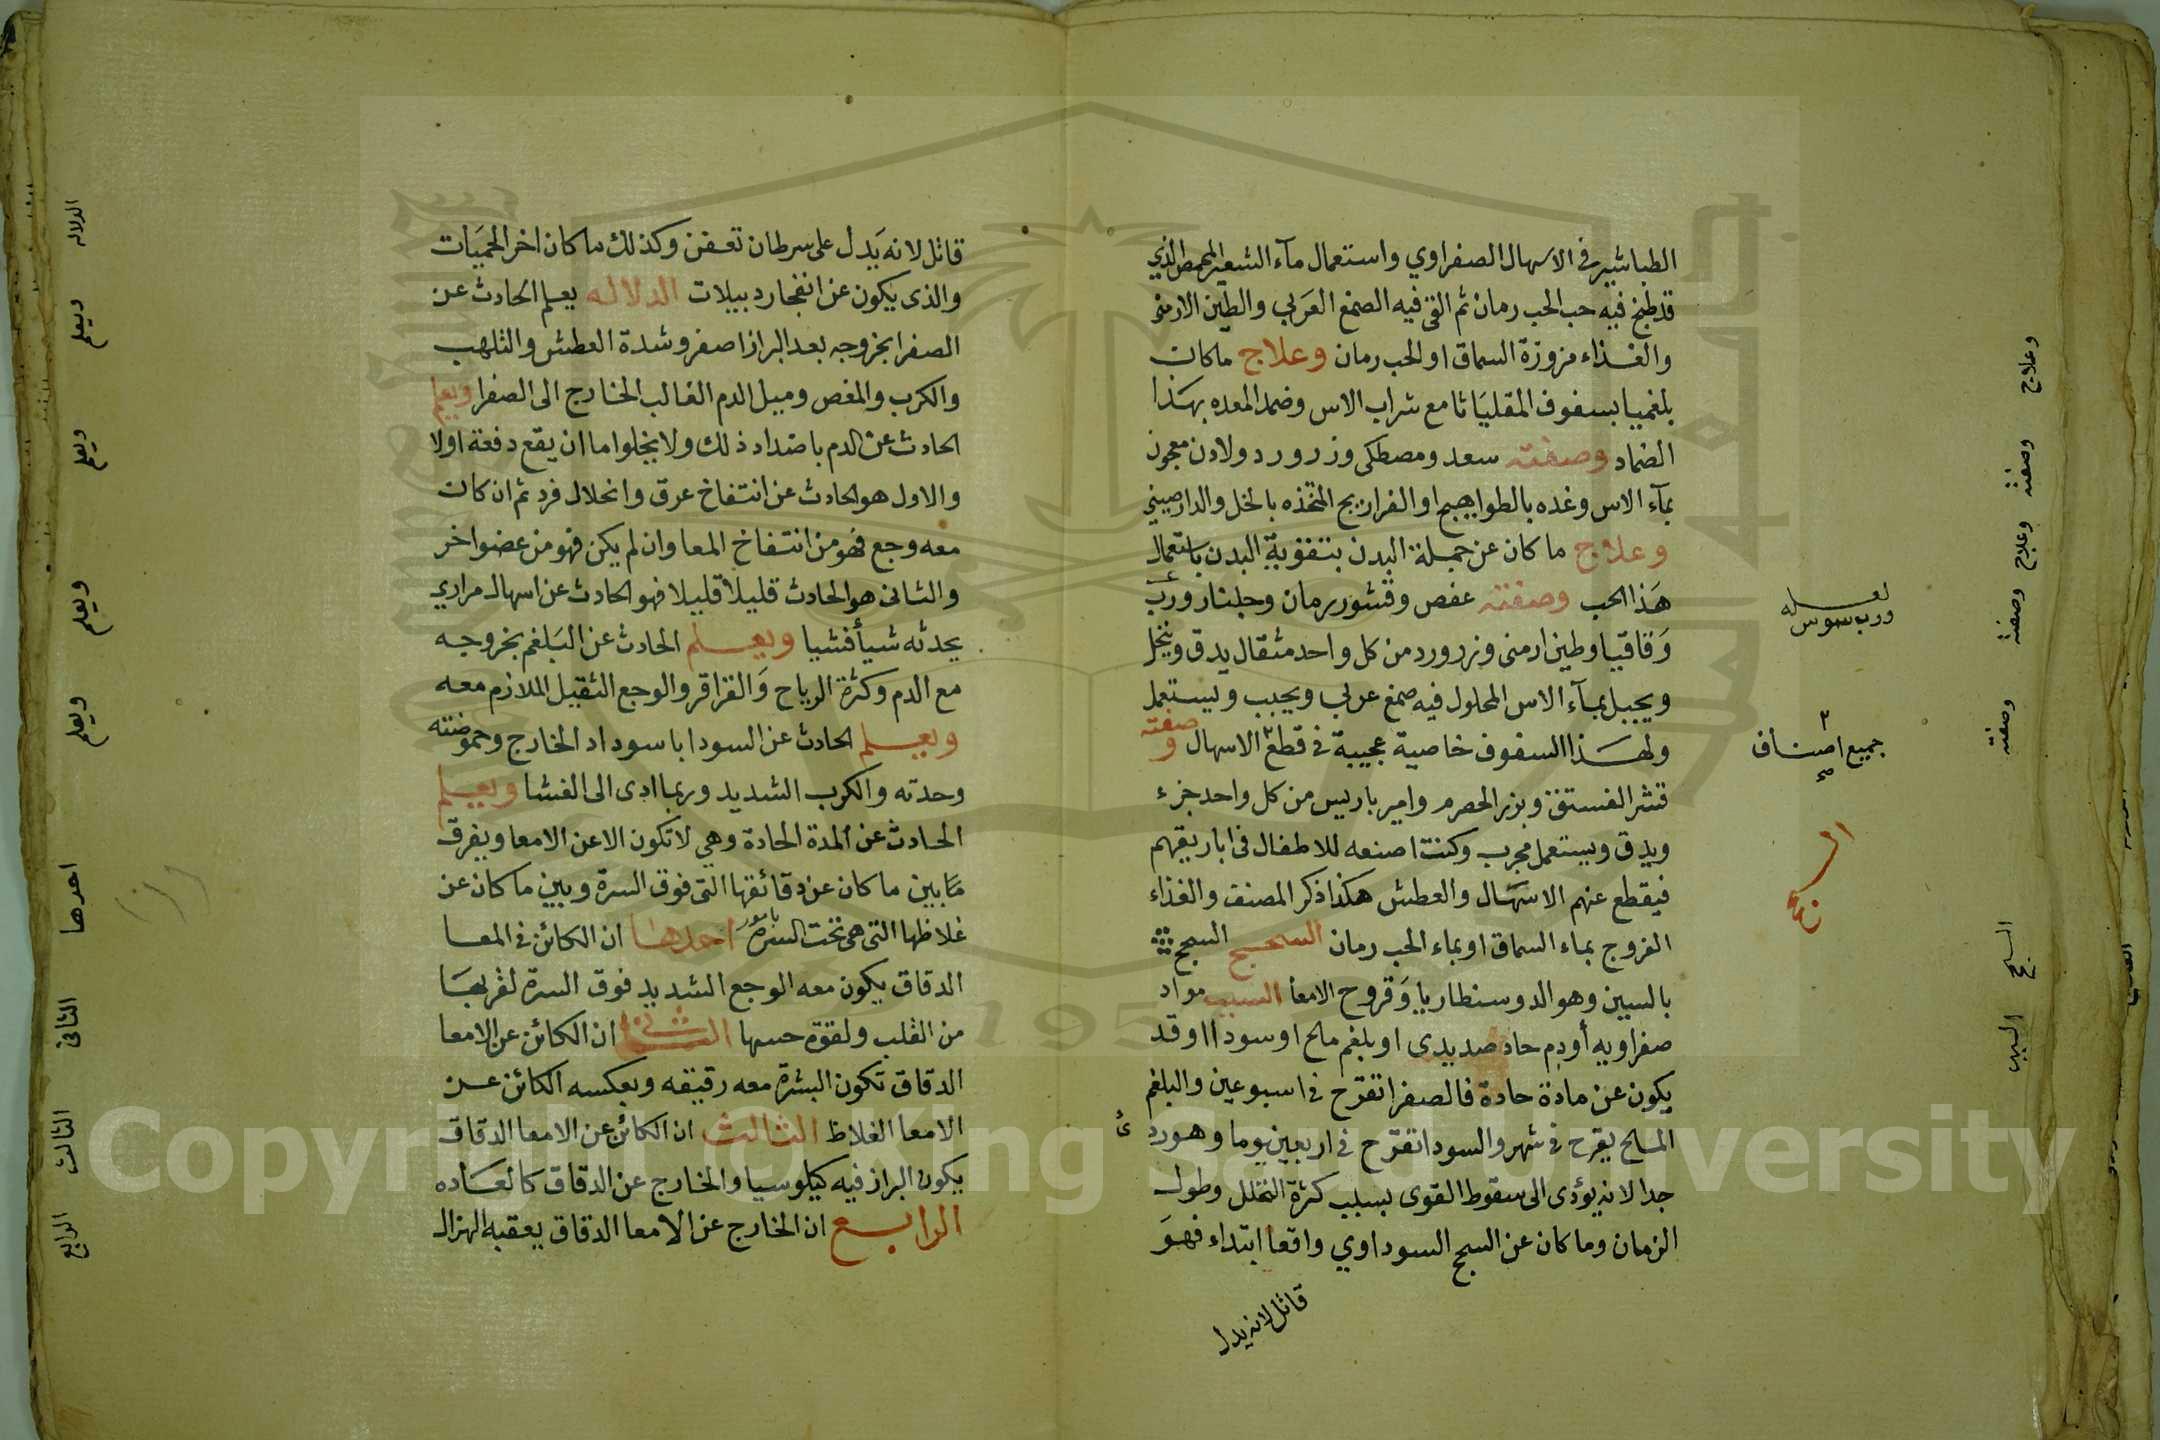 الطباشير في الاسهال الصفراوي واستعمال مآء الشعير المحمص الذي
قد طبخ فيه حب الحب رمان ثم القى فيه الصمغ العربي والطين الارمني
والغذاء مزوزة السماق او الحب رمان وعلاج ما كان
بلغميا بسفوف المقلياثا مع شراب الاس وضمد المعده بهذا
الضماد وصفته سعد ومصطكى وزرورد ولادن معجون
بمآء الاس وغده بالطواهيج او الفراريج المتخذه بالخل والدارصيني
وعلاج ما كان عن جملة البدن بتقوية البدن باستعمال
هذا الحب وصفته عفص وقشور رمان وجلنار ورب
وقاقيا وطين ارمني وزرورد من كل واحد مثقال يدق وينخل
ويجبل بمآء الاس المحلول فيه صمغ عربي ويحبب ويستعمل
ولهذا السفوف خاصية عجيبة في قطع الاسهال وصفته
قشر الفستق وبزر الحصرم وامير باريس من كل واحد جزء
ويدق ويستعمل مجرب وكنت اصنعه للاطفال في اباريقهم
فيقطع عنهم الاسهال والعطش هكذا ذكر المصنف والغذاء
الفروج بماء السماق او بماء الحب رمان السحج السحج
بالسين وهو الدوسنطاريا وقروح الامعا السبب مواد
صفراويه أودم حاد صديدي او بلغم مالح او سودا اوقد
يكون عن مادة حادة فالصفرا تقرح في اسبوعين والبلغم
المالح يقرح في شهر والسودا تقرح في اربعين يوما وهو ردئ
جدا لانه يؤدى الى سقوط القوى بسبب كثرة التحلل وطول
الزمان وما كان عن السحج السوداوي واقعا ابتداء فهو
قاتل لانه يدل
لعله
ورب سوس
جميع اصناف
السحج
وعلاج
وصفته
وعلاج
وصفته
وصفته
السحج
السبب
قاتل لانه يدل على سرطان تعفن وكذلك ما كان اخر الحميات
والذى يكون عن انفجار دبيلات الدلاله يعلم الحادث عن
الصفرا بخروجه بعد البراز اصفر وشدة العطش والتلهب
والكرب والمغص وميل الدم الغالب الخارج الى الصفرا ويعلم
الحادث عن الدم باضداد ذلك ولا يخلوا اما ان يقع دفعة اولا
والاول هو الحادث عن انتفاخ عرق وانحلال فرد ثم ان كان
معه وجع فهو من انتفاخ المعا وان لم يكن فهو من عضو اخر
والثانى هو الحادث قليلا قليلا فهو الحادث عن اسهال مراري
يحدثه شيأ فشيا ويعلم الحادث عن البلغم بخروجه
مع الدم وكثرة الرياح والقراقر والوجع الثقيل الملازم معه
ويعلم الحادث عن السودا باسوداد الخارج وحموضته
وحدته والكرب الشديد وربما ادى الى الغشا ويعلم
الحادث عن المدة الحادة وهي لا تكون الا عن الامعا ويفرق
مابين ما كان عن دقائقها التى فوق السرة وبين ما كان عن
غلاظها التى هي تحت السرة بامور احدها ان الكائن في المعا
الدقاق يكون معه الوجع الشديد فوق السرة لقربها
من القلب ولقوة حسها الثانى ان الكائن عن الامعا
الدقاق تكون البشرة معه رقيقه وبعكسه الكائن عن
الامعا الغلاظ الثالث ان الكائن عن الامعا الدقاق
يكون البراز فيه كيلوسيا والخارج عن الدقاق كالعاده
الرابع ان الخارج عن الامعا الدقاق يعقبه الهزال
الدلاله
ويعلم
ويعلم
ويعلم
ويعلم
احدها
الثانى
الثالث
الرابع
Copyright © King Saud University
195